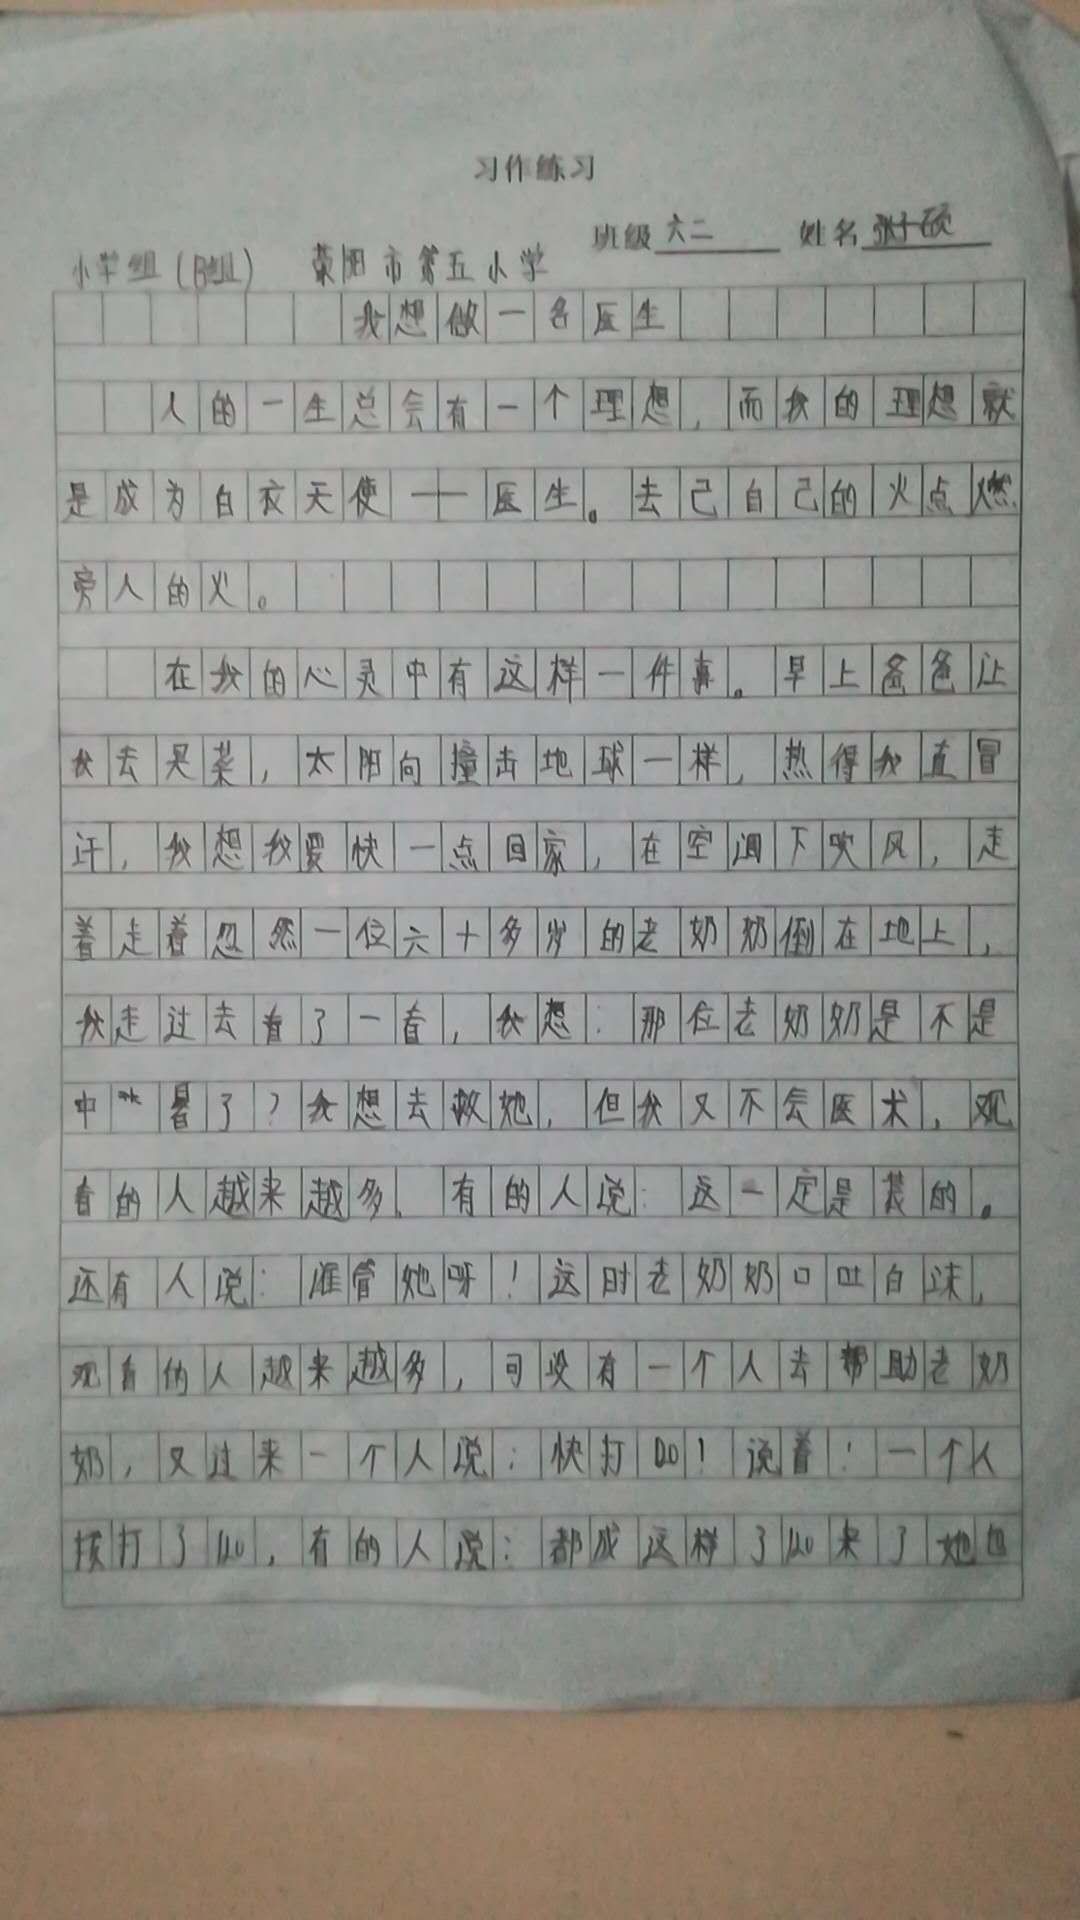 习作练习
班级 六二 姓名
小学组(B组) 荥阳市第五小学
我想做一名医生
人的一生总会有一个理想,而我的理想就
是成为白衣天使——医生。去己自己的火点燃
旁人的火。
在我的心灵中有这样一件事。早上爸爸让
我去买菜,太阳向撞击地球一样,热得我直冒
汗,我想我要快一点回家,在空调下吹风,走
着走着忽然一位六十多岁的老奶奶倒在地上,
我走过去看了一看,我想:那位老奶奶是不是
中暑了?我想去救她,但我又不会医术,观
看的人越来越多,有的人说:这一定是装的。
还有人说:谁管她呀!这时老奶奶口吐白沫,
观看的人越来越多,可没有一个人去帮助老奶
奶,又过来一个人说:快打120!说着!一个人
拨打了120,有的人说:都成这样了120来了她也